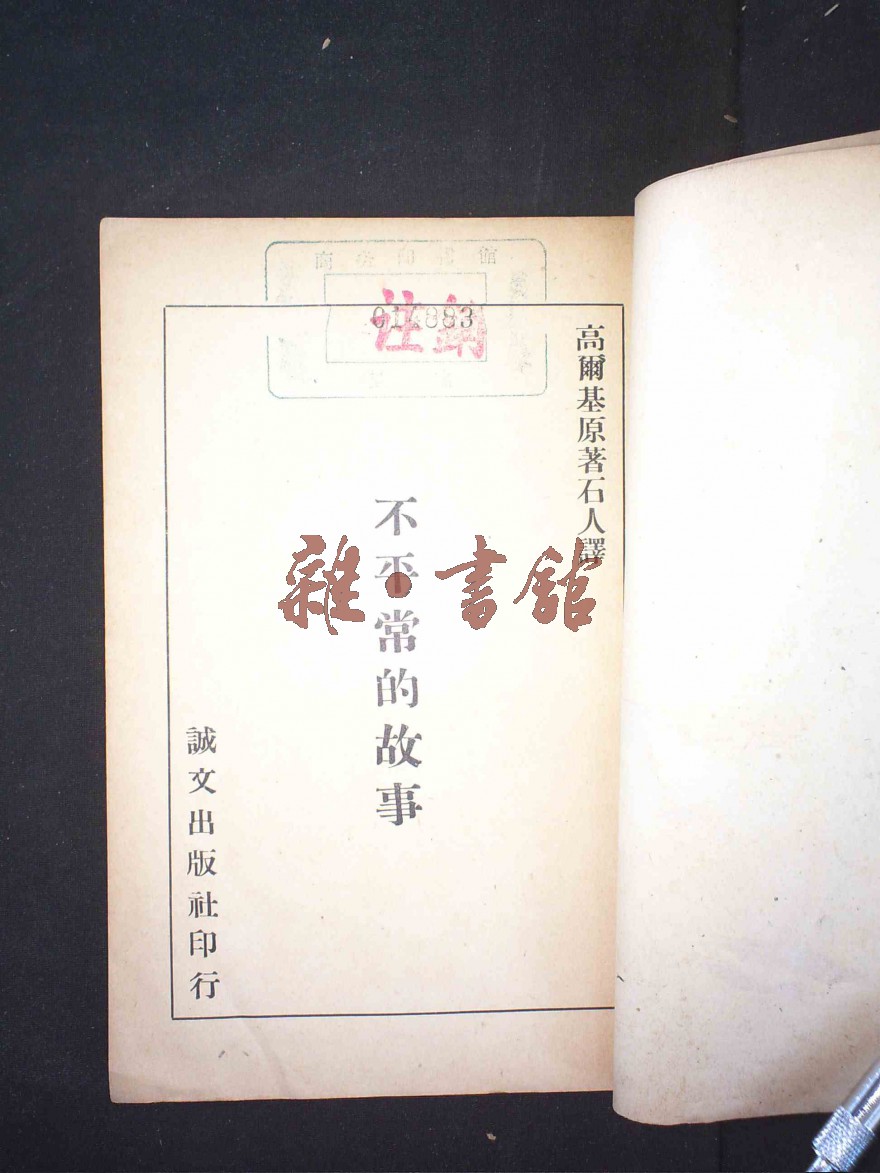 商務印書館
註銷
011883
高爾基原著石人譯
不平常的故事
雜·書館
誠文出版社印行